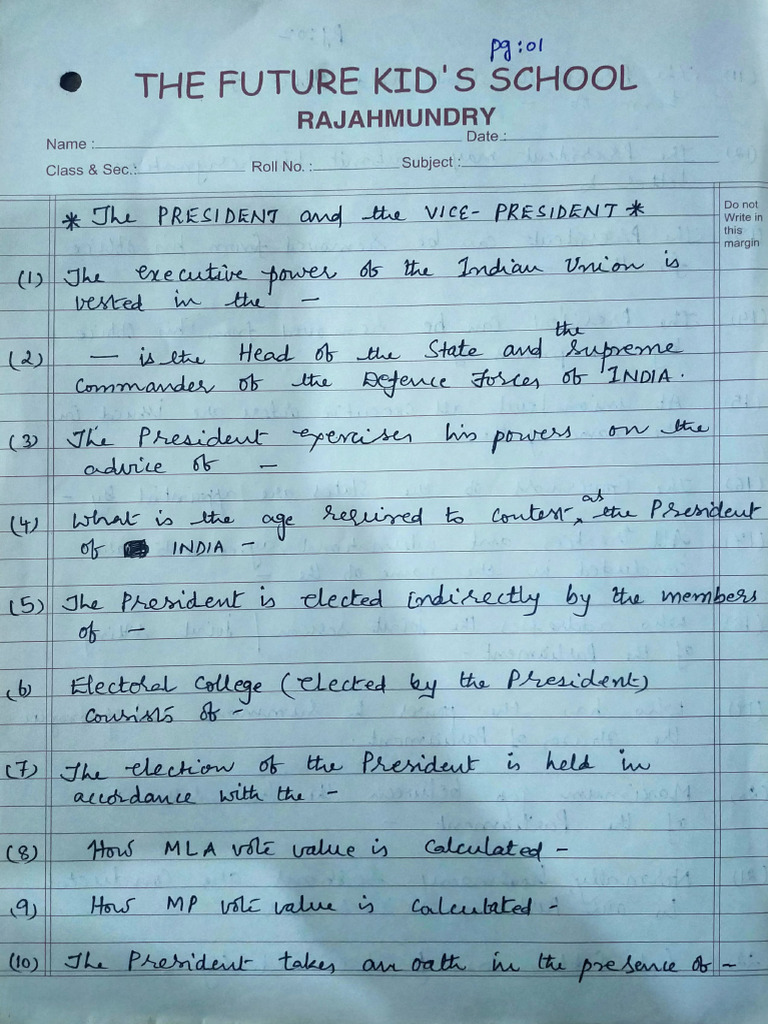 pg:01
THE FUTURE KID'S SCHOOL
RAJAHMUNDRY
Name : Date :
Class & Sec.: Roll No. : Subject :
Do not
Write in
this
margin
* The PRESIDENT and the VICE-PRESIDENT *
(1) The executive power of the Indian Union is
vested in the –
(2) — is the Head of the State and the Supreme
Commander of the Defence Forces of INDIA.
(3) The President exercises his powers on the
advice of –
(4) What is the age required to contest as the President
of INDIA –
(5) The President is elected indirectly by the members
of –
(6) Electoral College (elected by the President)
consists of –
(7) The election of the President is held in
accordance with the –
(8) How MLA vote value is calculated –
(9) How MP vote value is calculated –
(10) The President takes an oath in the presence of –